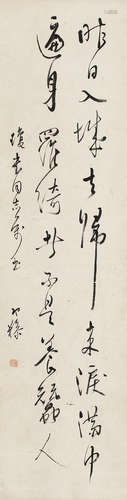 昨日入城去歸来淚滿巾
遍身羅綺者不是養蠶人
同志